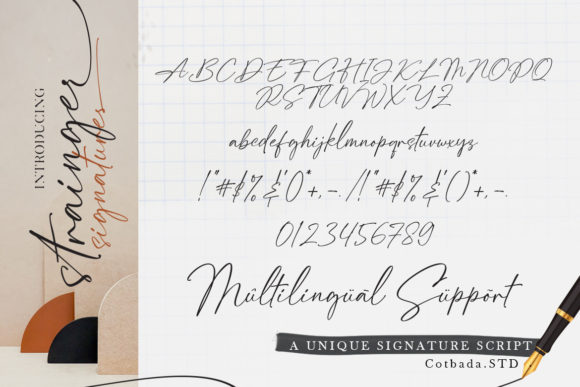 INTRODUCING
strainger
signatures
ABCDEFGHIJKLMNOPQ
RSTUVWXYZ
abcdefghijklmnopqrstuvwxyz
!"#$%&'()*+,-./!"#$%&'()*+,-.
0123456789
Mültilingüãl Süppõrt
A UNIQUE SIGNATURE SCRIPT
Cotbada.STD